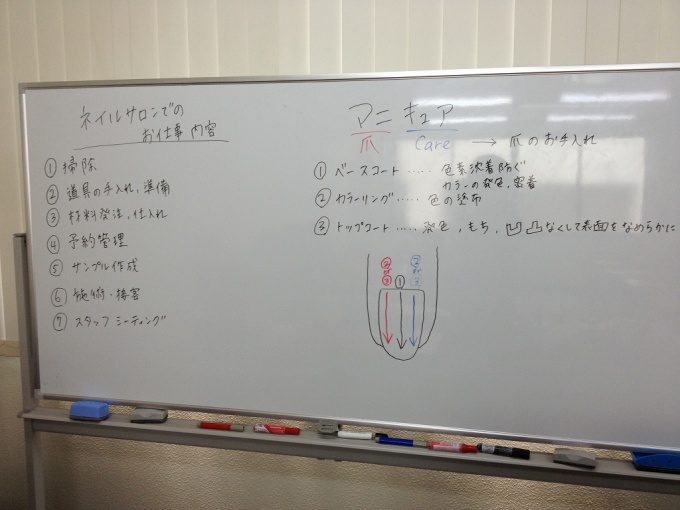 ネイルサロンでの
お仕事内容
① 掃除
② 道具の手入れ、準備
③ 材料発注、仕入れ
④ 予約管理
⑤ サンプル作成
⑥ 施術・接客
⑦ スタッフミーティング
マニキュア
爪 Care → 爪のお手入れ
① ベースコート ‥‥ 色素沈着防ぐ
カラーの発色、密着
② カラーリング ‥‥ 色の塗布
③ トップコート ‥‥ 発色、もち、凹凸なくして表面をなめらかに
② ① ②
③ ③